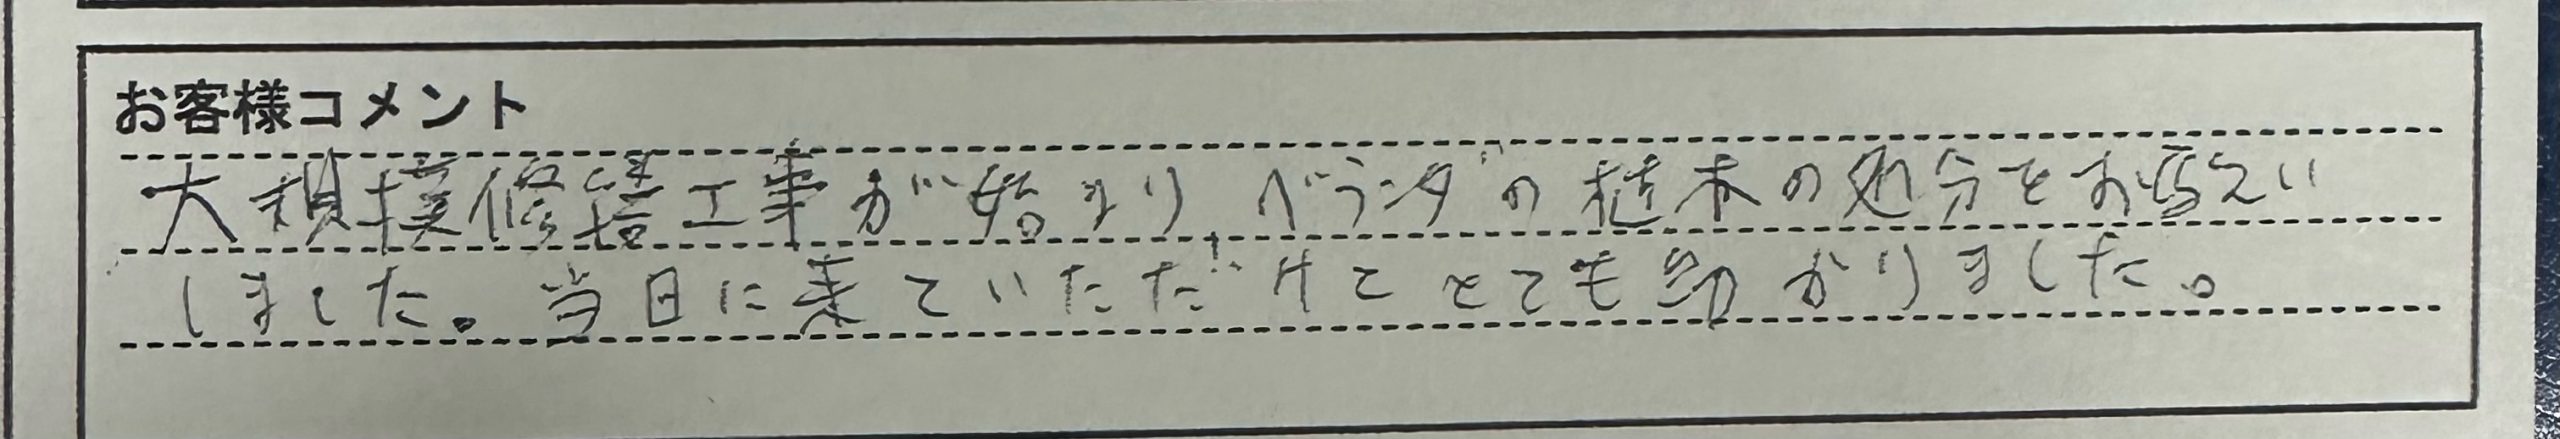 お客様コメント
大規模修繕工事が始まりベランダの植木の処分をお願い
しました。当日に来ていただけてとても助かりました。